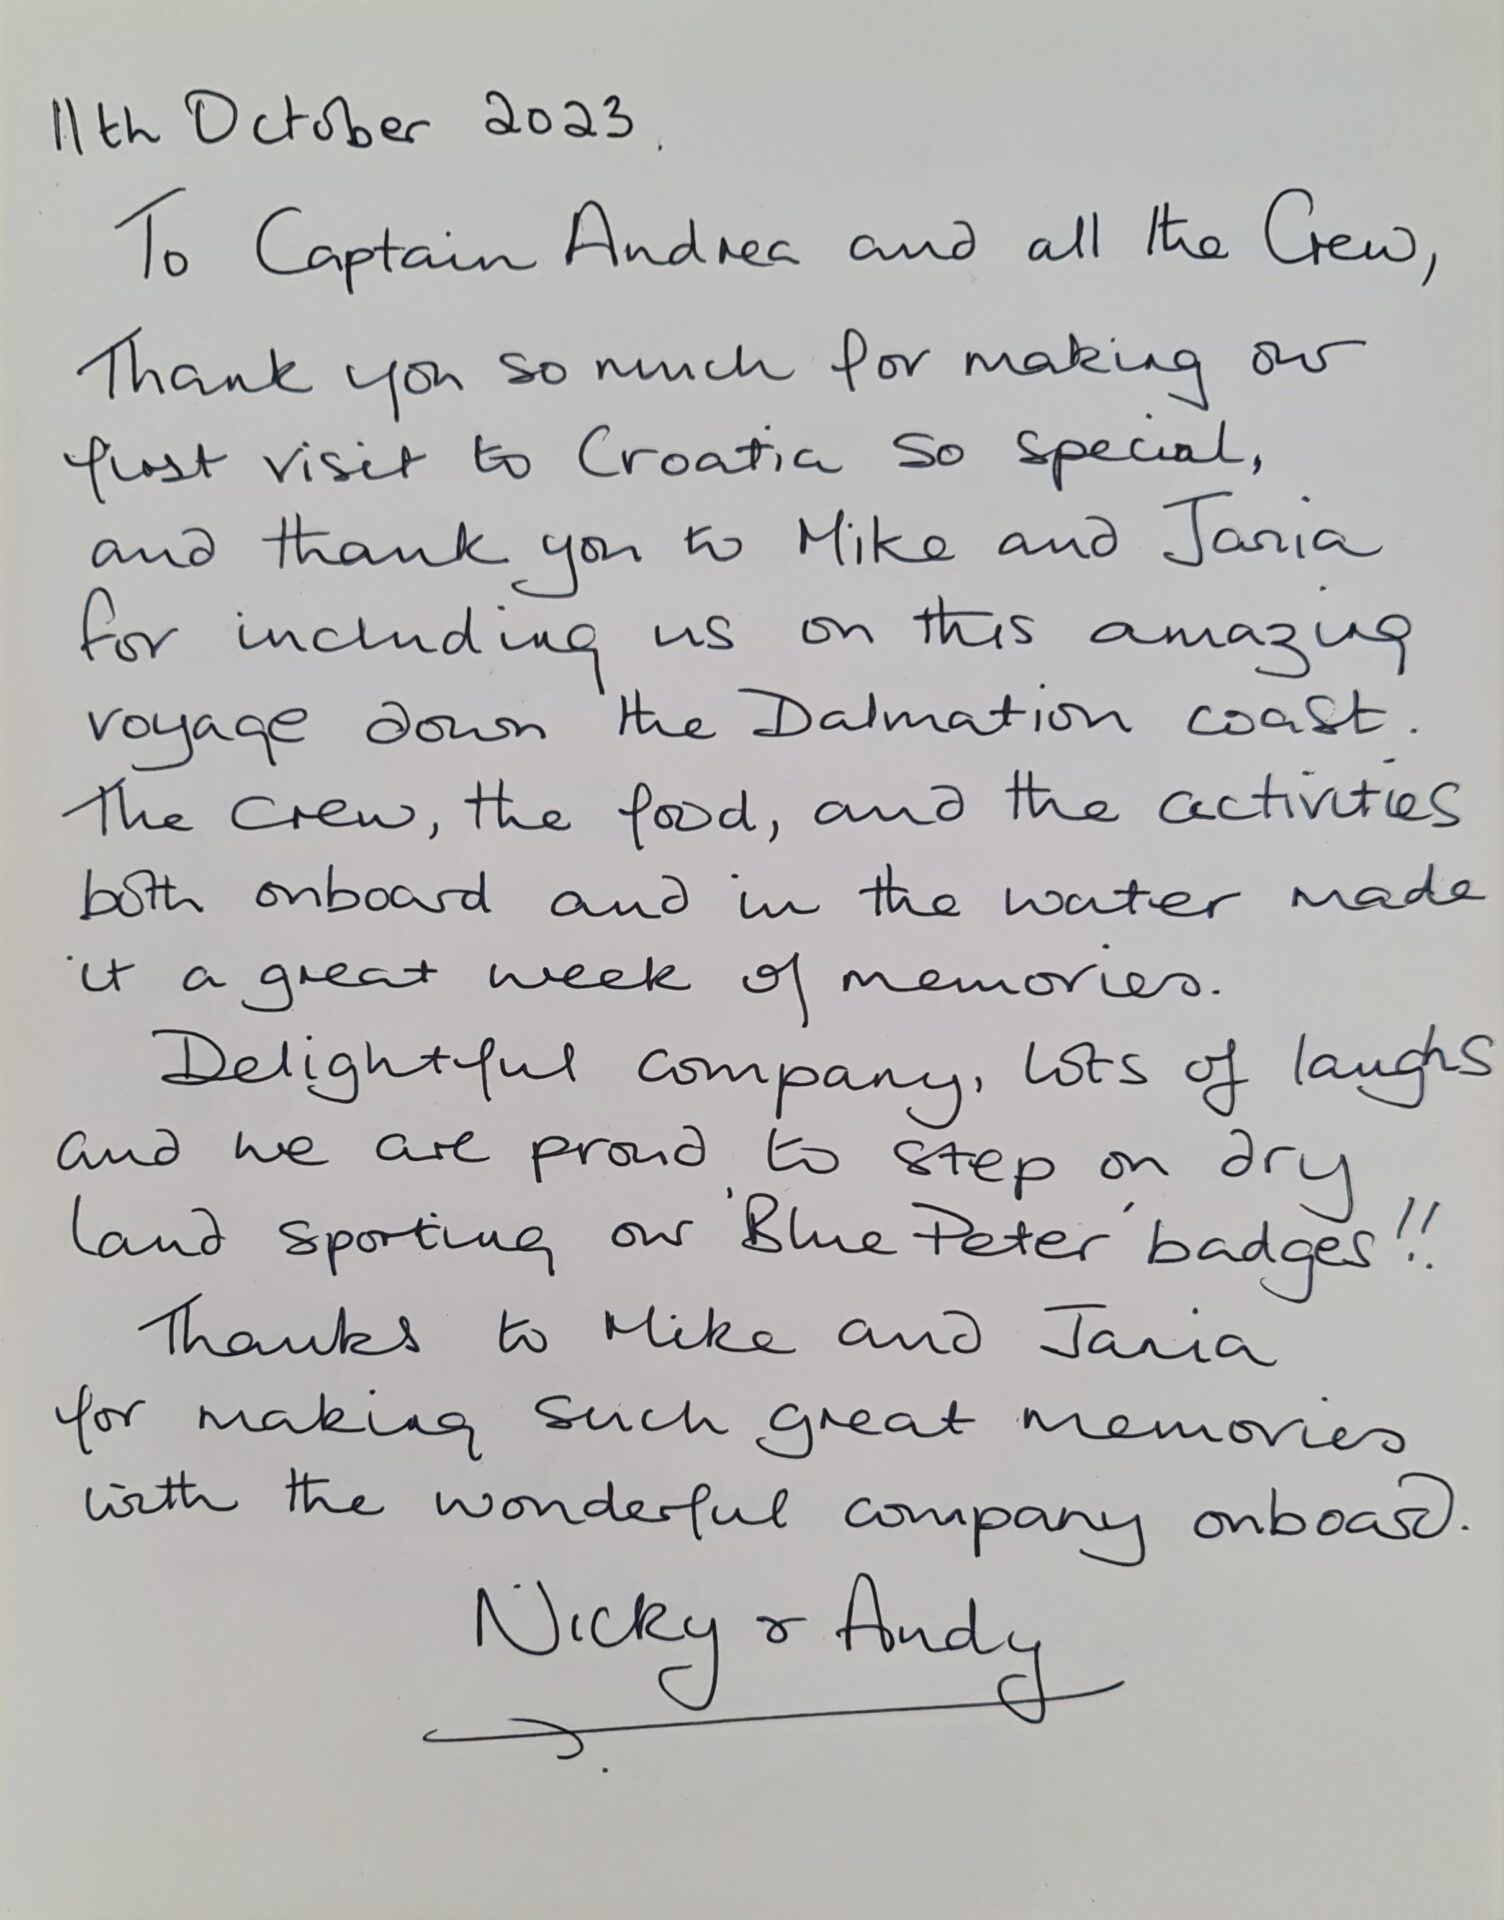 11th October 2023.
To Captain Andrea and all the Crew,
Thank you so much for making our
first visit to Croatia so special,
and thank you to Mike and Jania
for including us on this amazing
voyage down the Dalmation coast.
The crew, the food, and the activities
both onboard and in the water made
it a great week of memories.
Delightful company, lots of laughs
and we are proud to step on dry
land sporting our 'Blue Peter' badges!!
Thanks to Mike and Jania
for making such great memories
with the wonderful company onboard.
Nicky & Andy